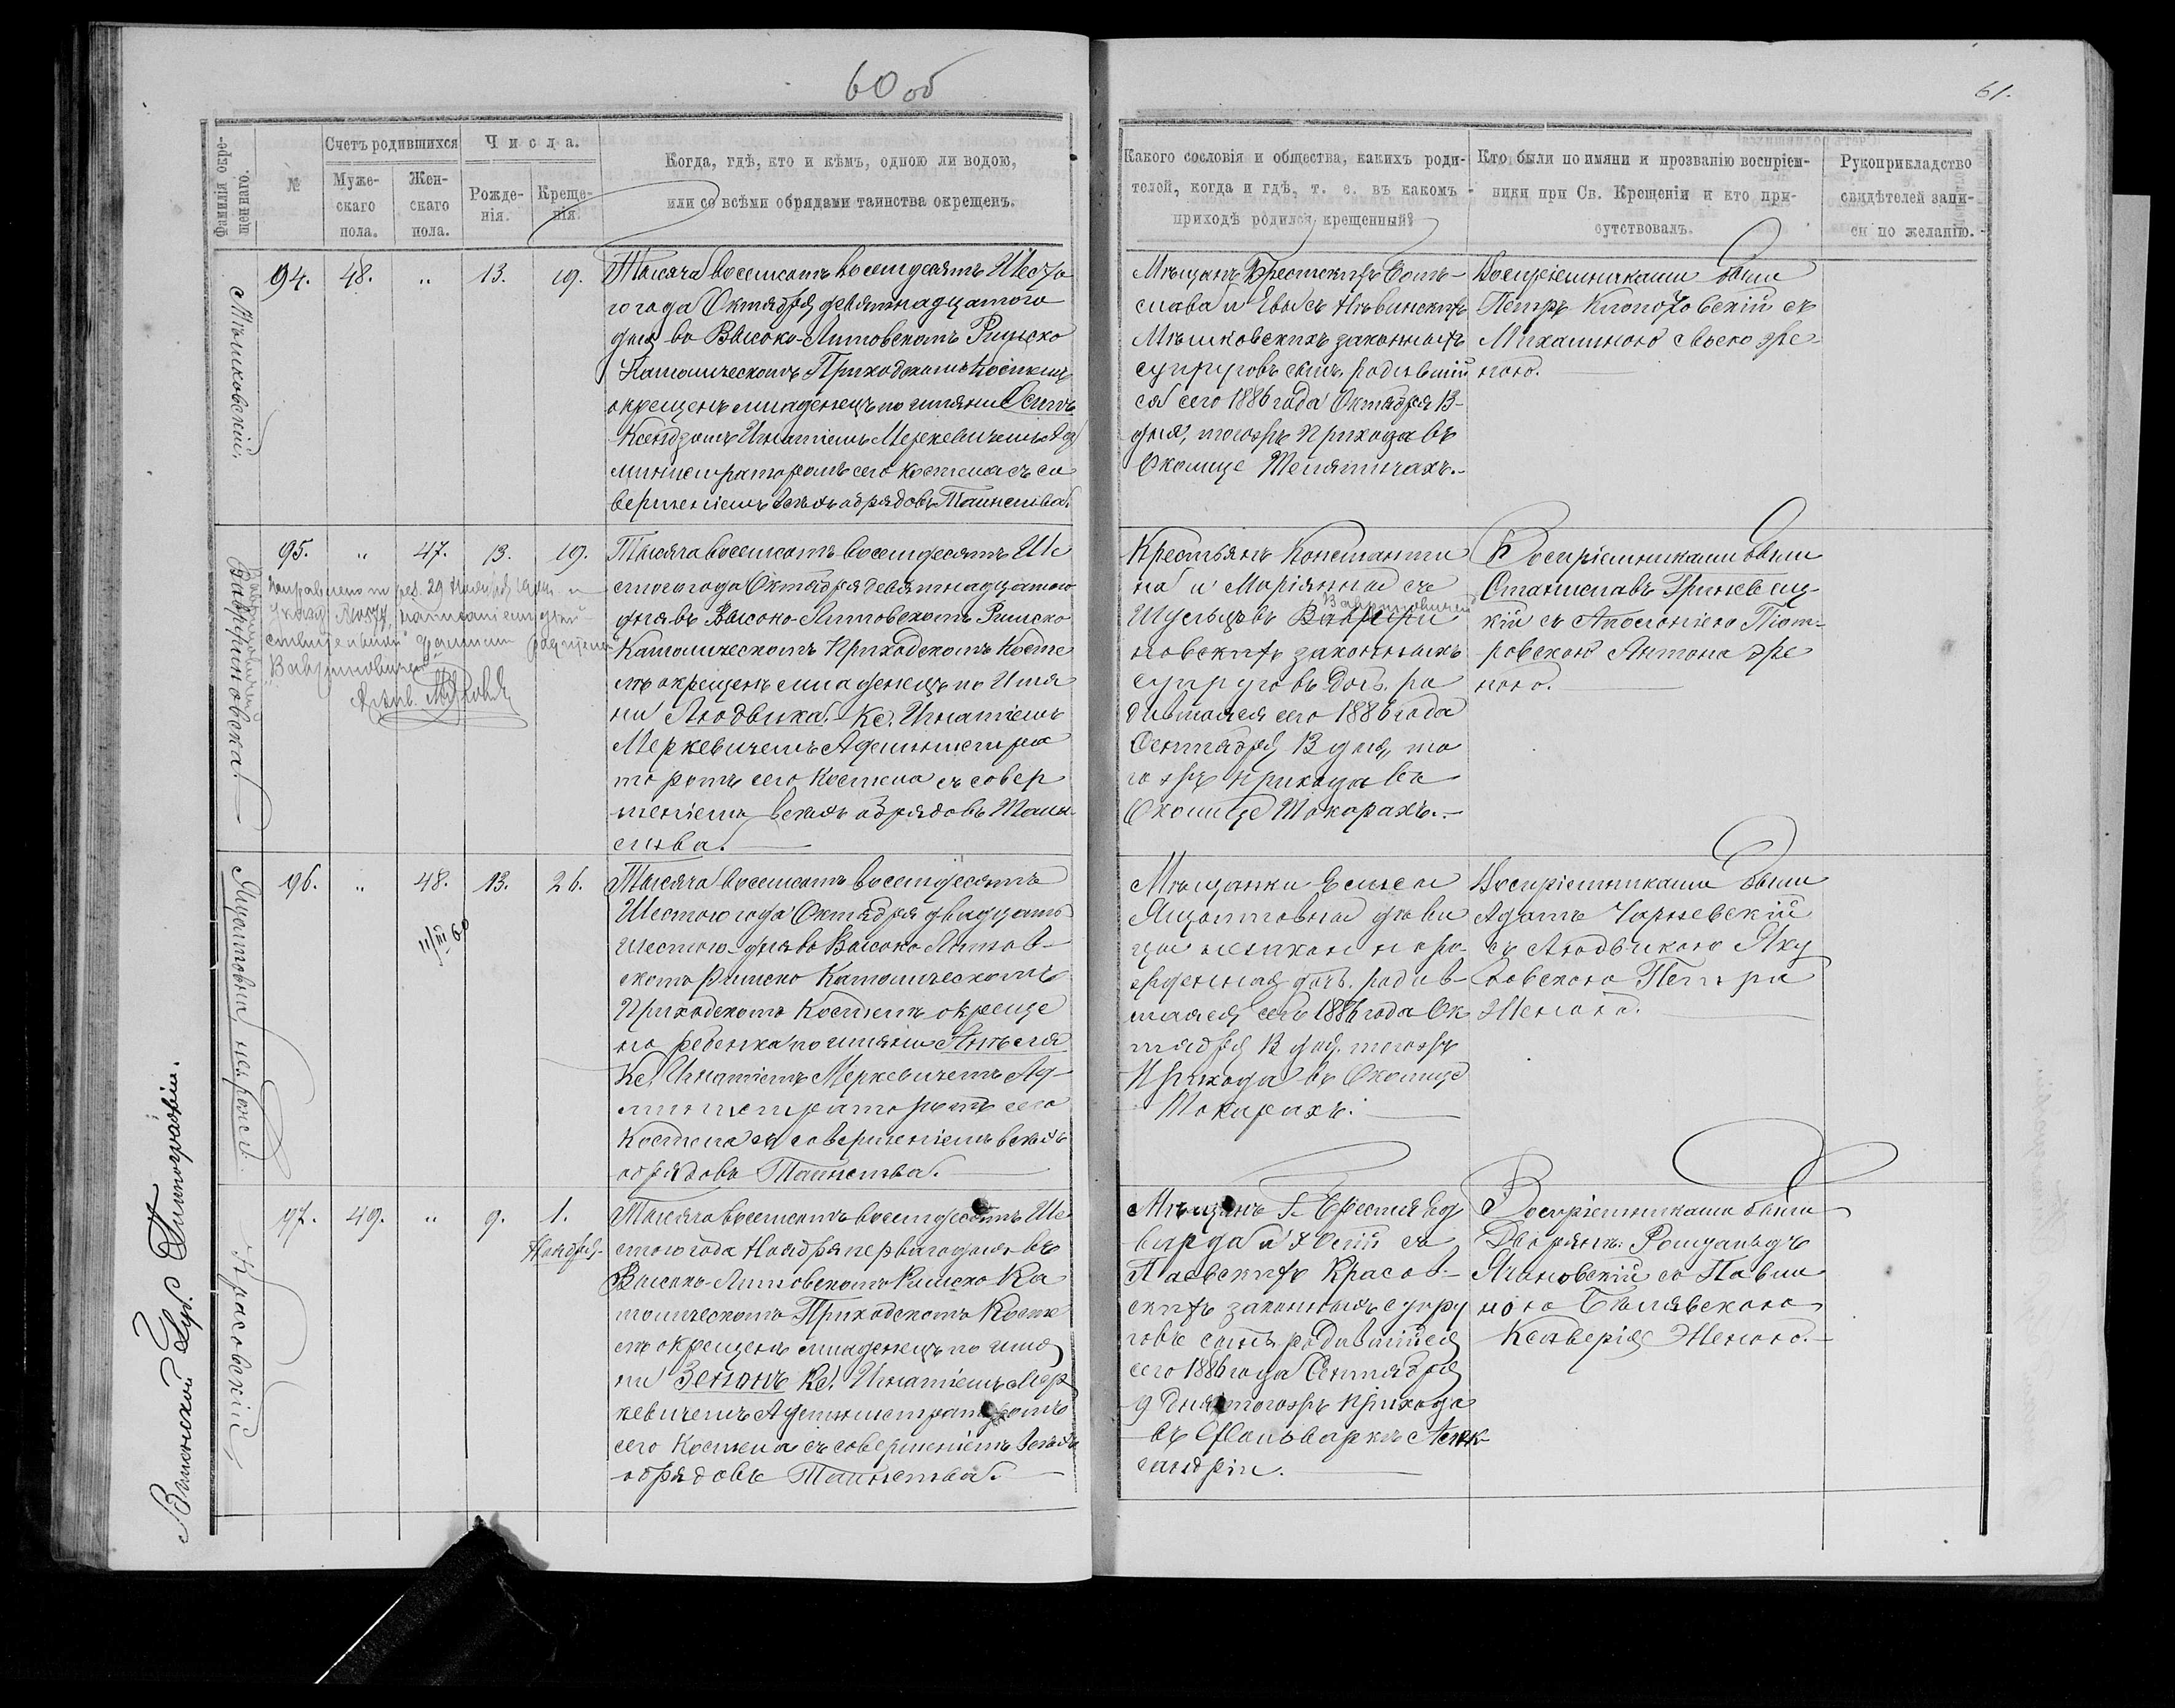 60 об
61.
Фамилія окре-
щеннаго.
№
Счетъ родившихся
Муже-
скаго
пола.
Жен-
скаго
пола.
Числа.
Рожде-
нія.
Креще-
нія.
Когда, гдѣ, кто и кѣмъ, одною ли водою,
или со всѣми обрядами таинства окрещенъ.
Какого сословія и общества, какихъ роди-
телей, когда и гдѣ, т. е. въ какомъ
приходѣ родился крещенный?
Кто были по имяни и прозванію воспріем-
ники при Св. Крещеніи и кто при-
сутствовалъ.
Рукоприкладство
свидѣтелей запи-
си по желанію.
Мѣшковскій.
94. 48. " 13. 19.
Тысяча восемсотъ восемдесятъ Шесто
го года Октября девятнадцатого
дня во Высоко-Литовскомъ Римско
Католическомъ Приходскомъ Костелѣ
окрещенъ младенецъ по имяни Осипъ
Ксендзомъ Игнатіемъ Меркевичемъ Ад
министраторомъ сего Костела съ со
вершеніемъ всѣхъ обрядовъ Таинства.
Мѣщанъ Брестскихъ Боле-
слава и Евы съ
Мѣшковскихъ законныхъ
супруговъ сынъ, родивший
ся сего 1886 года Октября 13
дня, тогожъ прихода въ
Околице Телятичахъ.
Воспріемниками были
Петръ Клопотовскій съ
Михалиною же
ною.
Вавриновска.
95. " 47. 13. 19.
Исправлено 29 Ноября
Вавриновичъ
Тысяча восемсотъ восемдесятъ Ше
стого года Октября девятнадцатого
дня въ Высоко-Литовскомъ Римско
Католическомъ Приходскомъ Косте
лѣ окрещенъ младенецъ по Имя
ни Людвика. Кс. Игнатіемъ
Меркевичемъ Администра
торомъ сего Костела съ совер
шеніемъ всѣхъ обрядовъ Таин
ства.
Крестьянъ Константи
на и Маріянны съ
Вавриновичей
новскихъ законныхъ
супруговъ дочь. ро
дившаяся сего 1886 года
Октября 13 дня, то
гожъ прихода въ
Околице Токарахъ.
Воспріемниками были
Станиславъ Гриневиц-
кій съ Аполоніею Піот-
ровскою Антона же
ною.
96. " 48. 13. 26.
11/III 60
Тысяча восемсотъ восемдесятъ
Шестого года Октября двадцать
шестого дня во Высоко Литов-
скомъ Римско Католическомъ
Приходскомъ Костелѣ окреще
но ребенка по имяни Анѣеля
Кс. Игнатіемъ Меркевичемъ Ад-
министраторомъ сего
Костела съ совершеніемъ всѣхъ
обрядовъ Таинства.
Мѣщанки
дѣви
цы незаконнорож-
денная дочь. родив-
шаяся сего 1886 года Ок
тября 13 дня. тогожъ
Прихода въ Околице
Токарахъ.
Воспріемниками были
Адамъ Чарневскій
съ Людвикою Яку
бовскою Петра
Женою.
Красовскій
97. 49. " 9. 1.
Ноября
Тысяча восемсотъ восемдесятъ Ше
стого года Ноября первого дня въ
Высоко-Литовскомъ Римско Ка
толическомъ Приходскомъ Косте
лѣ окрещенъ младенецъ по имя
ни Зенонъ Кс. Игнатіемъ Мер
кевичемъ Администраторомъ
сего Костела съ совершеніемъ всѣхъ
обрядовъ Таинства.
Мѣщанъ Г. Бреста Ед
варда и съ
Красов-
скихъ законныхъ супру
говъ сынъ родившійся
сего 1886 года Сентября
9 дня тогожъ прихода
въ Фольваркѣ Алек
сандріи.
Воспріемниками были
Дворянъ: Ромуальдъ
Ячиновскій со Павли
ною Бѣлявскою
Ксаверія Женою.
Виленской Губ. Типографіи.